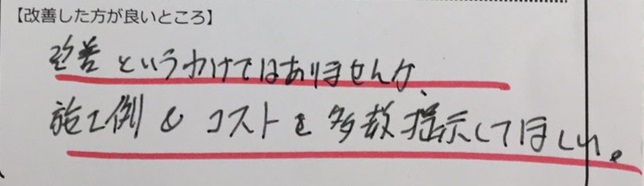 【改善した方が良いところ】
改善というわけではありませんが、
施工例&コストを多数提示してほしい。